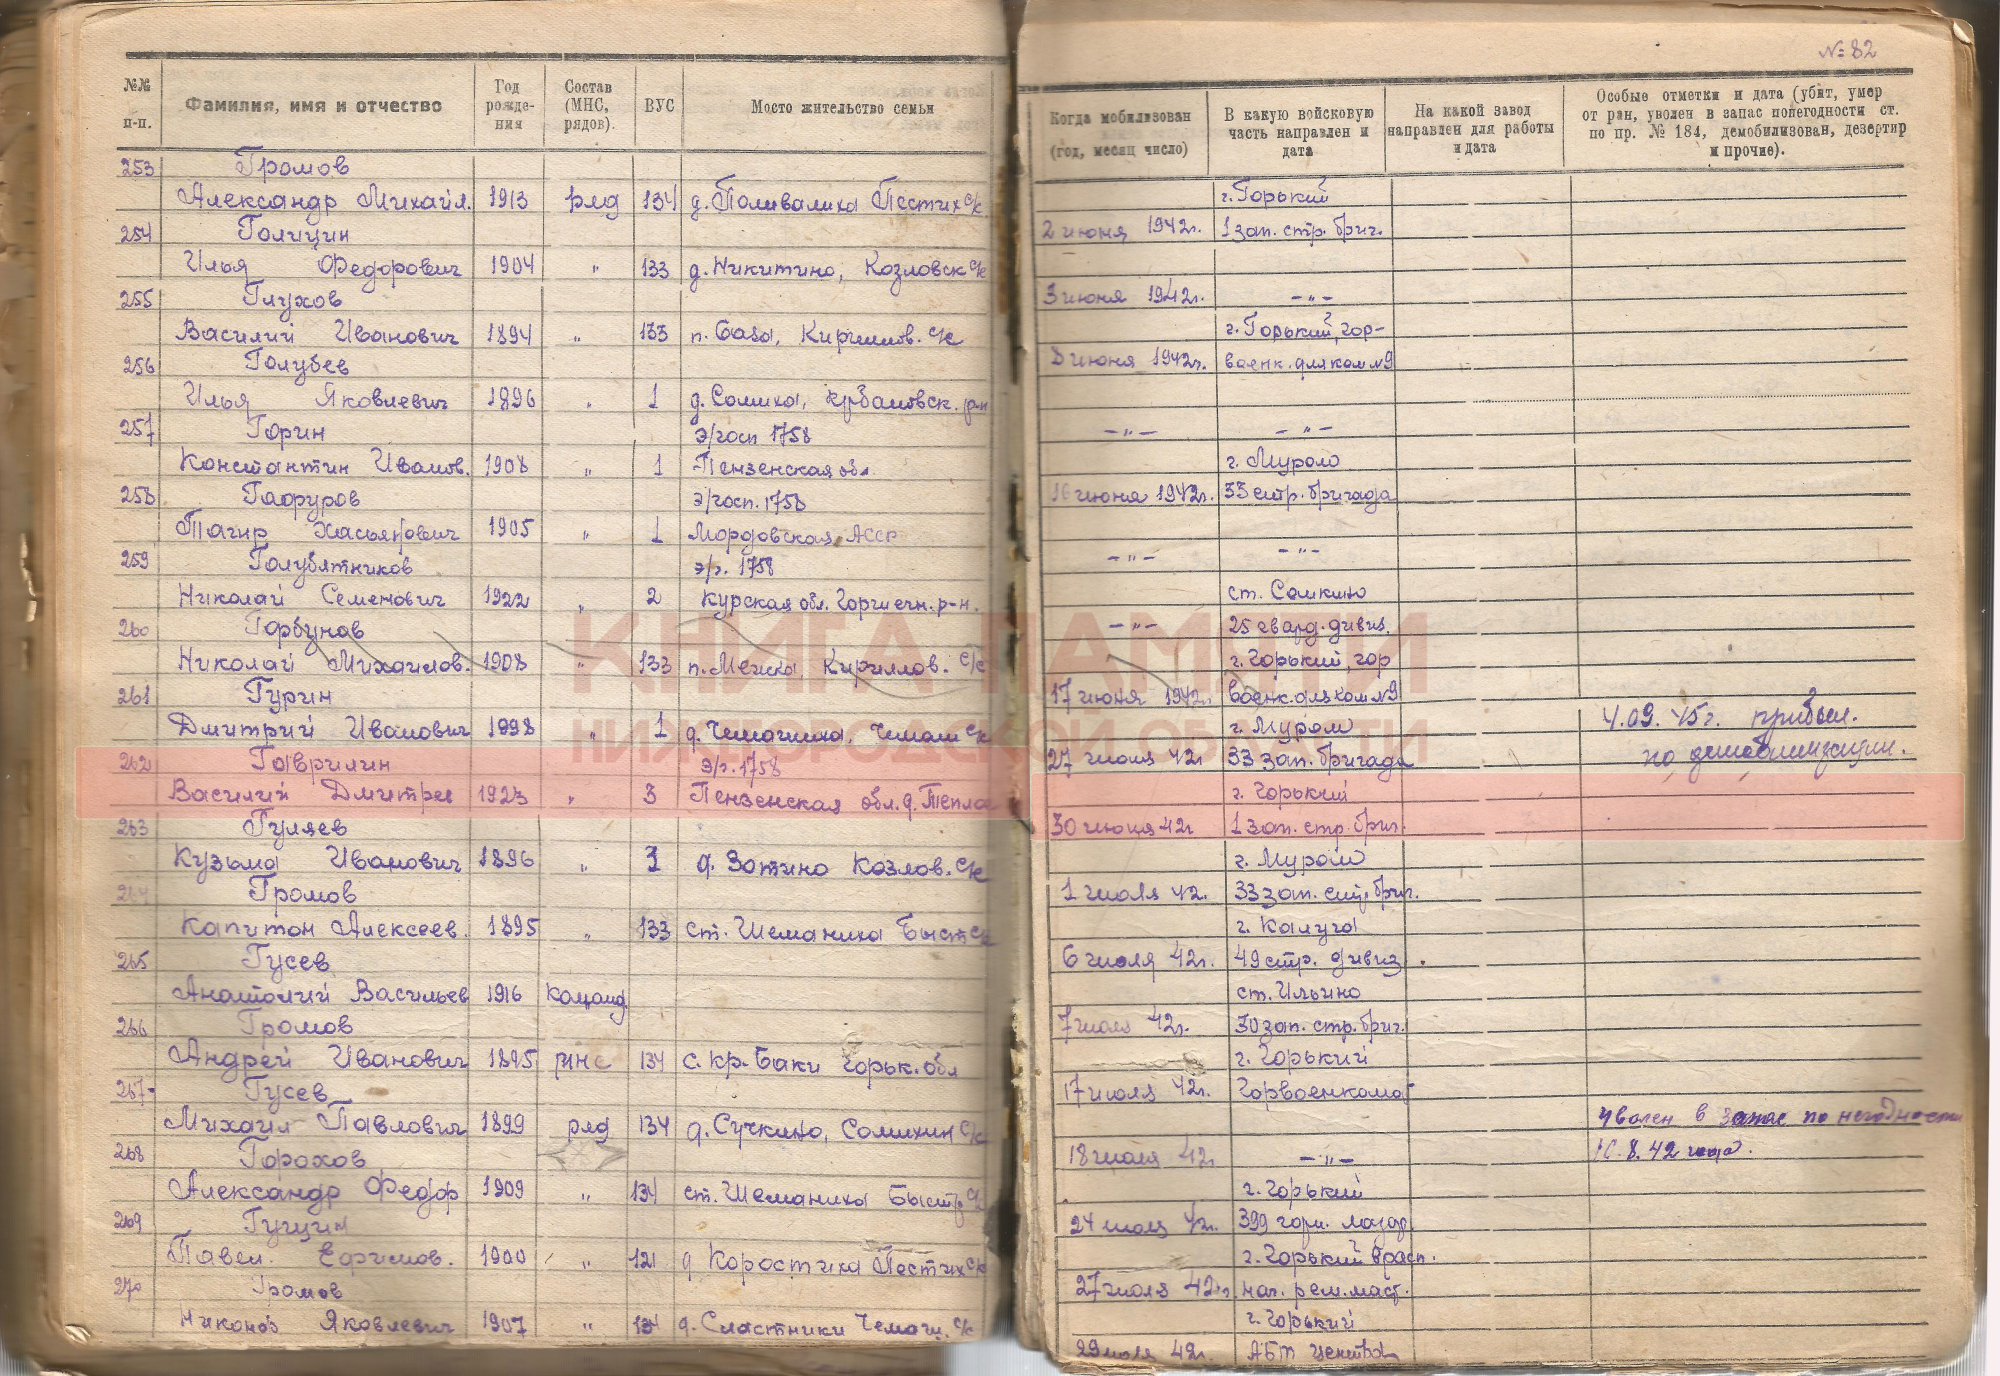 № 82
№№ п-п.
Фамилия, имя и отчество
Год рожде-ния
Состав (МНС, рядов).
ВУС
Место жительство семьи
Когда мобилизован (год, месяц число)
В какую войсковую часть направлен и дата
На какой завод направлен для работы и дата
Особые отметки и дата (убит, умер от ран, уволен в запас по негодности ст. по пр. № 184, демобилизован, дезертир и прочие).
253 Громов
Александр Михайл. 1913 ряд 134 д. Поливалиха Пестих с/с
г. Горький
2 июня 1942г. 1 зап. стр. бриг.
254 Голицин
Илья Федорович 1904 " 133 д. Никитино, Козловск с/с
3 июня 1942г. -"-
255 Глухов
Василий Иванович 1894 " 133 п. База, Кириллов. с/с
г. Горький, гор-
3 июня 1942г. военк. для ком №9
256 Голубев
Илья Яковлевич 1896 " 1 д. Сомиха, р-н
-"- -"-
257 Горин э/госп 1758
Константин Иванов. 1908 " 1 Пензенская обл
г. Муром
16 июня 1942г. 33 стр. бригада
258 Гафуров э/госп. 1758
Тагир Хасьянович 1905 " 1 Мордовская АССР
-"- -"-
259 Голубятников э/г. 1758
Николай Семенович 1922 " 2 Курская обл. р-н.
ст. Сомкино
-"- 25 гвард. дивиз.
260 Горбунов
Николай Михайлов. 1908 " 133 п. Кириллов. с/с
г. Горький, гор
17 июня 1942г военк. для ком №9
261 Гурин
Дмитрий Иванович 1898 " 1 д. Чемашиха, Чемаш с/с
г. Муром
27 июня 42г 33 зап. бригада
4.09.45г. прибыл.
по демобилизации.
262 Гаврилин э/г. 1758
Василий Дмитрие 1923 " 3 Пензенская обл. д. Тепло
г. Горький
30 июня 42г 1 зап. стр. бриг.
263 Гуляев
Кузьма Иванович 1896 " 1 д. Зотино Козлов. с/с
г. Муром
1 июля 42г. 33 зап. стр. бриг.
264 Громов
Капитон Алексеев. 1895 " 133 ст. Шеманиха Быст с/с
г. Калуга
6 июля 42г. 49 стр. дивиз.
265 Гусев
Анатолий Васильев 1916 команд
ст. Ильино
7 июля 42г. 30 зап. стр. бриг.
266 Громов
Андрей Иванович 1895 мнс 134 с. Кр-Баки Горьк. обл
г. Горький
17 июля 42г. Горвоенкомат
267 Гусев
Михаил Павлович 1899 ряд 134 д. Сучкино, Сомихин с/с
18 июля 42г -"-
уволен в запас по негодности
10.8.42 года.
268 Горохов
Александр Федор 1909 " 134 ст. Шеманиха Быстр с/с
г. Горький
24 июля 42г. 399 лазар.
269 Гущин
Павел Ефимов. 1900 " 121 д Коростиха Пестих с/с
г. Горький в расп.
27 июля 42г. нач. рем. маст.
270 Громов
Никонов Яковлевич 1907 " 134 д. Сластники Чемаш. с/с
г. Горький
29 июля 42г. АБТ центр
КНИГА ПАМЯТИ
НИЖЕГОРОДСКОЙ ОБЛАСТИ